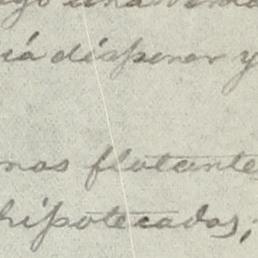 una
disponer y
mas flotante
hipotecados,